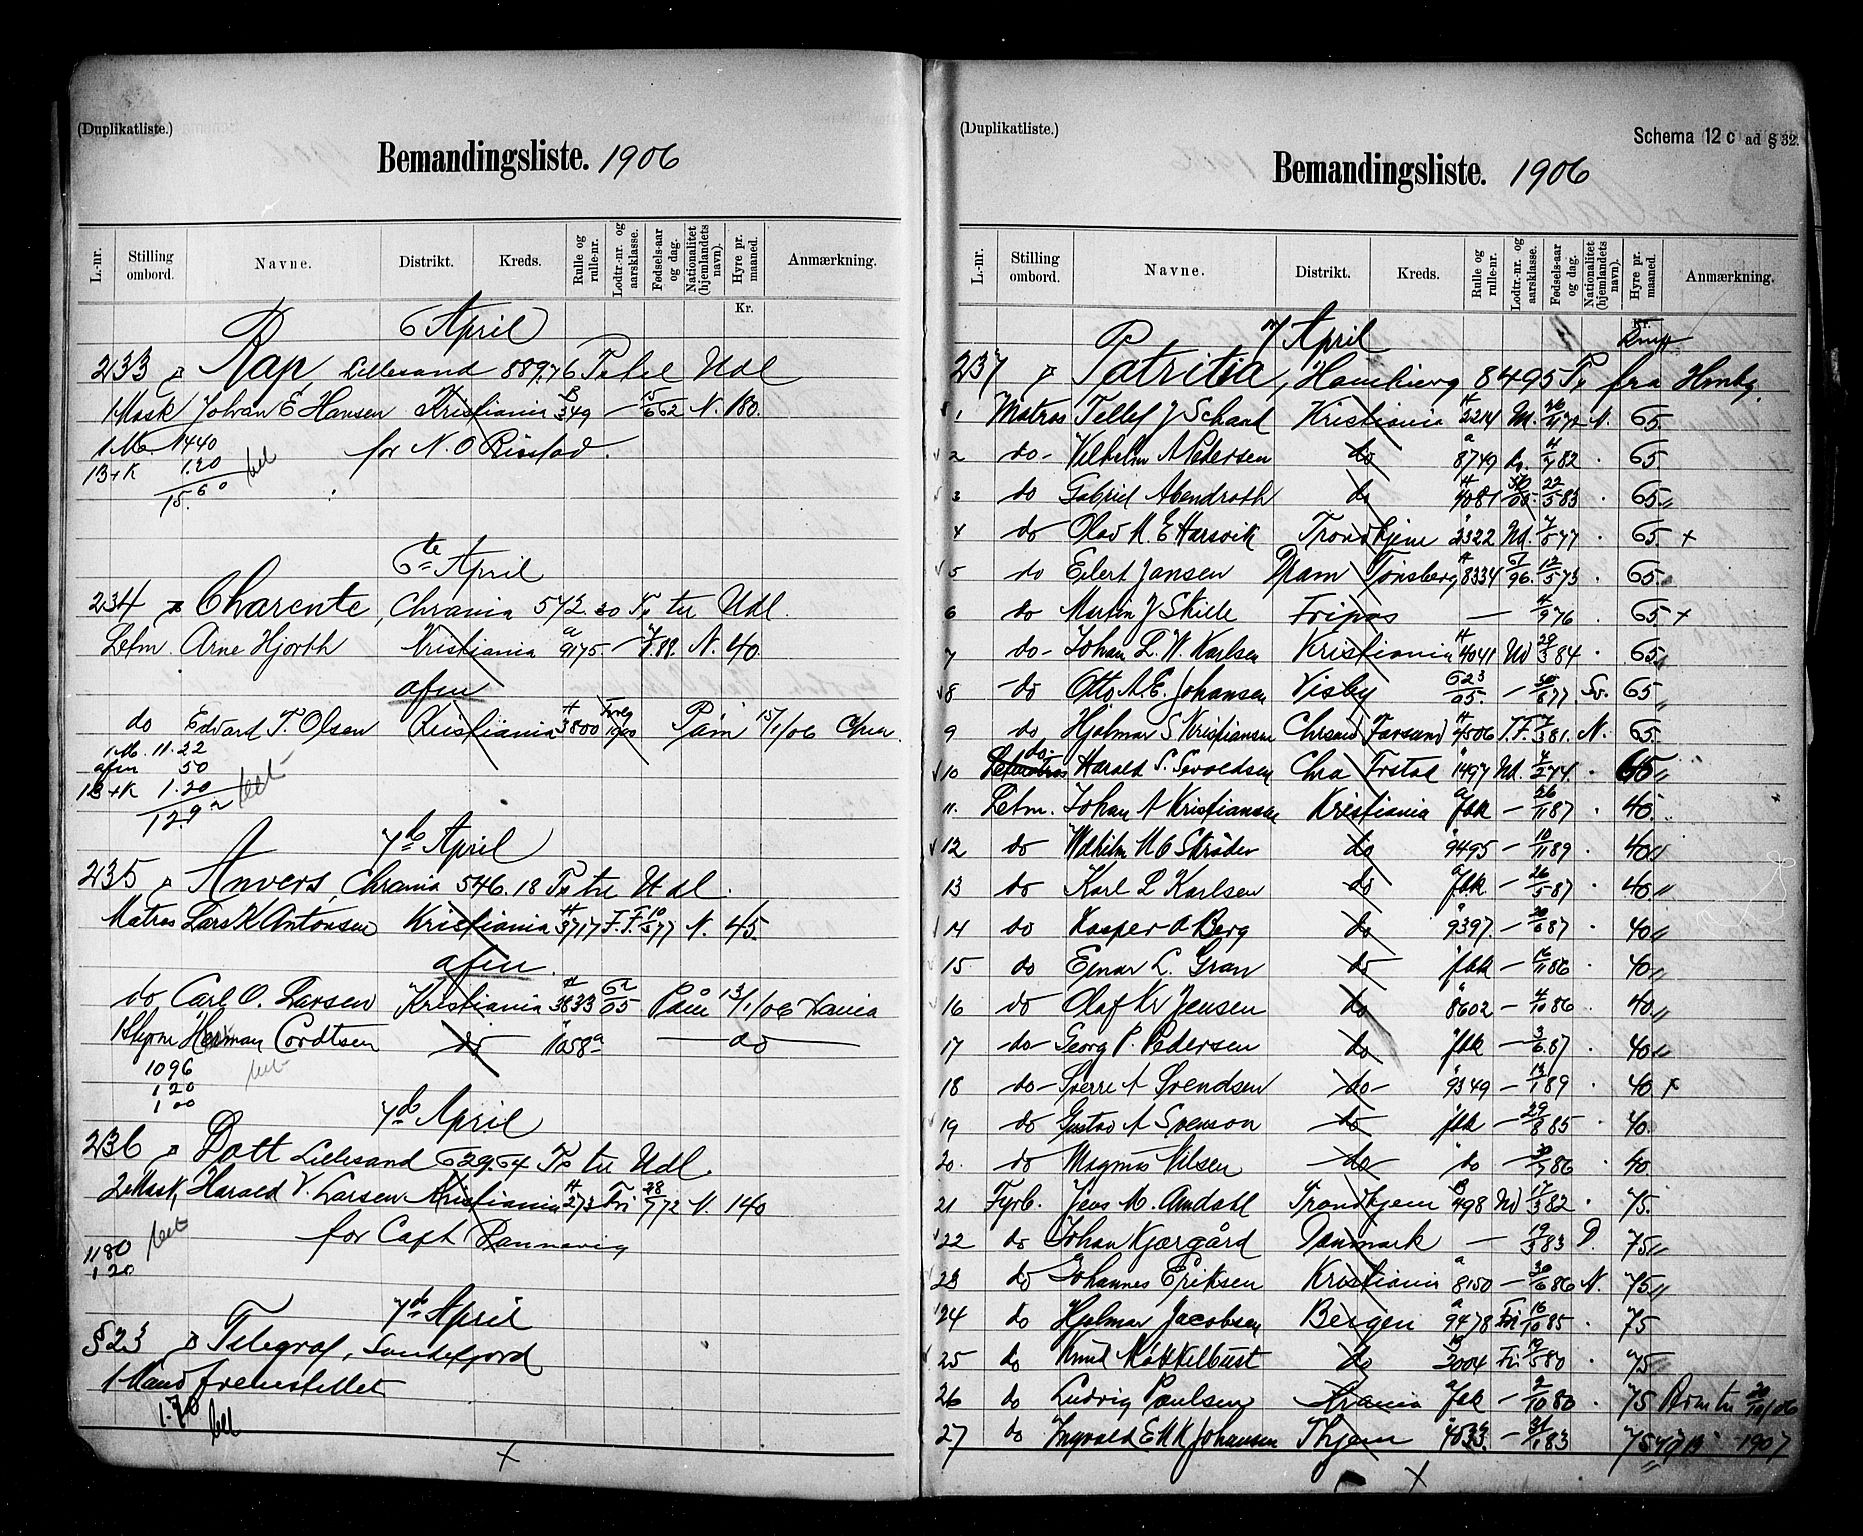 (Duplikatliste.)
Bemandingsliste. 1906
L.-nr. Stilling ombord. Navne. Distrikt. Kreds. Rulle og rulle-nr. Lodtr.-nr. og aarsklasse. Fødsels-aar og dag. Nationalitet (hjemlandets navn). Hyre pr. maaned. Anmærkning.
Kr.
6 April
233 Rap, Lillesand 889.76 To til Udl
1 Mask Johan E Hansen Kristiania 349 — 15/6 62 N. 180.
1 M 1440 for N. O Risstad.
B+K 1.20
15.60
6te April
234 Charente, Chrania 572.30 To til Udl.
Letm. Arne Hjorth Kristiania a 9175 — N. 40.
afm
do Edvard T. Olsen Kristiania 3800 Påm 15/1/06 Chra
1 M. 11.22
afm 50
B+K 1.20
12.92
7de April
235 Anvers, Chrania 546.18 To til Udl.
Matros Lars K Antonsen Kristiania 3717 F.F. 10/5 77 N. 45.
afm.
do Carl O. Larsen Kristiania 3833 62/05 Påm 13/1/06 Xania
1 Styrm Herman Cordtsen do 1058a — do —
1096
120
100
7de April
236 Dott Lillesand 629.64 To til Udl.
2 Mask Harald V. Larsen Kristiania 273 Fri 28/7 72 N. 140
for Capt Dannevig
1180
120
7de April
§23 Telegraf, Sandefjord
1 Mand fremstillet
1.70
(Duplikatliste.)
Schema 12 c ad § 32.
Bemandingsliste. 1906
L.-nr. Stilling ombord. Navne. Distrikt. Kreds. Rulle og rulle-nr. Lodtr.-nr. og aarsklasse. Fødsels-aar og dag. Nationalitet (hjemlandets navn). Hyre pr. maaned. Anmærkning.
Kr.
7 April
237 Patritia, Hamburg 8495 To fra Hmbg.
1 Matros Tellef J Schand Kristiania 2214 Ud. 26/4 72 N. 65.
2 do- Vilhelm A Pedersen do 8749 do. 4/7 82 . 65
3 do Gabriel Abendroth do 4081 22/5 83 . 65 "
4 do Olav M. E Harsvik Trondhjem 2322 Ud. 7/8 77 . 65. +
5 do Eilert Jansen Dram Tønsberg 8334 67/96. 12/5 73 . 65.
6 do Martin J Skille Fripas — 4/9 76 . 65 +
7 do- Johan L. W. Karlsen Kristiania 4041 Ud 29/3 84 . 65 "
8 do Otto A. E. Johansen Visby 623/95. — 30/8 77 Sv. 65 "
9 do Hjalmar S Kristiansen Chrsand Farsund 4506 T.F. 7/3 81. N. 65.
10 do. Harald S. Sevoldsen Chra Frstad 1497 Ud. 4/2 74. . 65 "
11. Letm. Johan A Kristiansen Kristiania fbk — 26/11 87 . 40.
12 do Wilhilm M C Skrøder do 9495 — 10/11 89 . 40 "
13 do Karl L Karlsen do fbk — 26/5 87 . 40 "
14 do Kasper A Berg do 9397. — 20/6 87 . 40 "
15. do Ejnar L. Gran do fbk — 16/11 86 . 40 "
16 do Olaf Kr Jensen do 8602 — 4/10 86 . 40 "
17 -do- Georg P. Pedersen do fbk — 3/6 87 . 40 "
18 do- Sverre A Svendsen do- 9349 — 13/1 89 . 40 +
19 do Gustav A Svenson do fbk — 29/8 85 . 40.
20. do Magnus Nilsen do do — 30/7 86 . 40
21 Fyrb. Jens M. Amdahl Trondhjem 498 Ud 17/3 82 . 75.
22 do Johan Kjærgård Danmark — 19/3 83 D. 75 "
23 do Johannes Eriksen Kristiania 8150 — 30/6 86 N. 75 "
24 do Hjalmar Jacobsen Bergen 9478 Fri 16/10 85 . 75
25 do Knut Møkkelbust do 3004 Fri 19/5 80 . 75
26 do Ludvig Paulsen Xrania fbk — 2/10 80 . 75 20/10/06
27 do Ingvald E K K Johansen Thjem 4033 — 31/1 83 75 1907